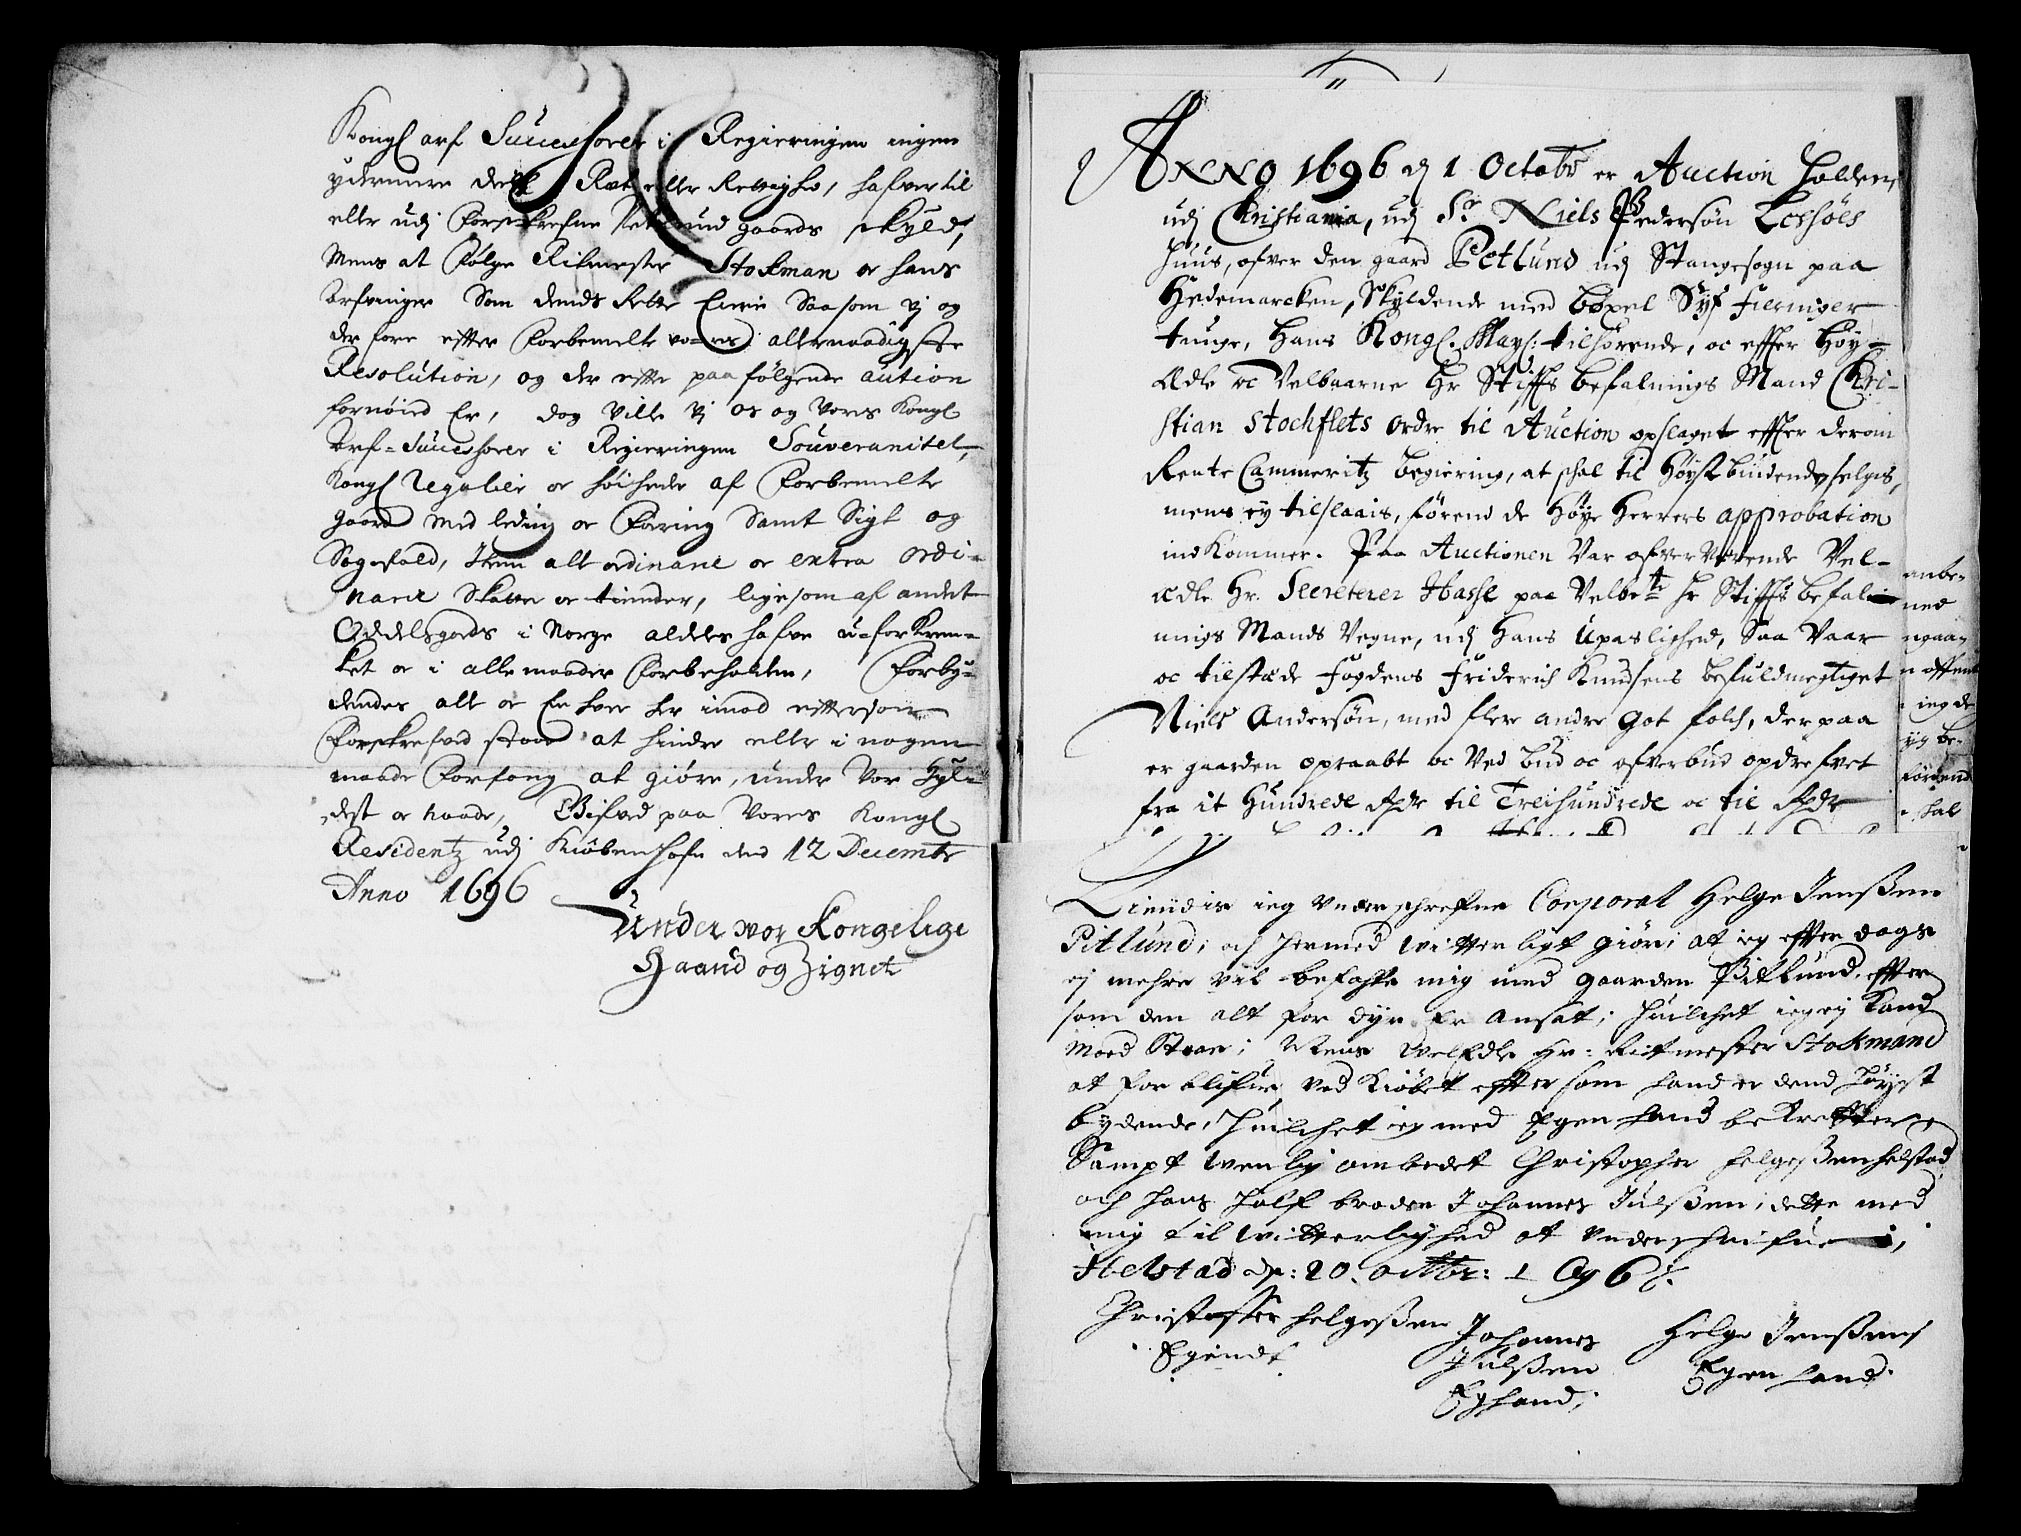 Kongl arf Successorer i Regieringen ingen
ydermere deel, Ræt eller Rettighed, hafver til
eller udj forskrefne Petlund gaards skyld,
Mens at følge Ritmester Stokman oc hans
Arfvinger Som dends rette Eiere Saasom Vj og
derfore effter forbemelte vores allernaadigste
Resolution, og der effter paafølgende aution
fornøied Er, dog ville Vj os og Vores Kongl
Arf-Successorer i Regieringen Souveranitet,
Kongl Regalier oc høiheder af forbemelte
gaard med leding oc Foring Samt Sigt og
Sagefald, Item alt ordinarie oc extra ordi-
narie Skatter oc tiender, ligesom af andet
Oddelsgods i Norge aldeles hafve u-forkren-
ket oc i alle maader forbeholden, Forby-
dendes alle oc En hver her imod eftersom
forskrefved staar at hindre eller i nogen
maade forfang at giøre, under Vor Hyl-
dest oc naade, Gifved paa Vores Kongl
Residentz udj Kiøbenhafn dend 12 Decembr
Anno 1696
Under vor Kongelige
Haand og Zignet
Anno 1696 d 1 Octobr er Auction holden
udj Christiania, udj Sr Niels Pedersøn Leshøes
huus, ofver den gaard Petlund udj Stangesogn paa
Hedemarcken, Skyldende med bøxel Syf fierninger
tunge, Hans Kongl. Mayt: tilhørende, oc effter Høy-
Ædle oc Velbaarne Hr Stiffts befalnings Mand Chri-
stian Stochflets ordre til Auction opslaget effter derom
Rente Cammeritz begiering, at schal til Høystbiudende selges,
mens ey tilslaais, førend de Høye Herrers approbation
indkommer. Paa Auctionen Var ofverværende Vel-
ædle Hr. Secreterer Hasse paa Velbte Hr Stiffts befal-
nings Mands Vegne, udj Hans Upaslighed, Saa Vaar
oc tilstæde fogdens Friderich Knudsens befuldmegtiget
Niels Andersøn, med flere andre got folch, der paa
er gaarden opraabt oc Ved bud oc ofverbud opdrefvet
fra it Hundrede Rdr til Treihundrede oc tie Rdr
anbe-
ned
ngaa-
n offent
ieg de
ig be-
førend
hal
Kiendis ieg underschrefne Corporal Helge Jenssen
Pitlund; och hermed witterligt giør; at ieg effter dags
ej mehre vil befatte mig med gaarden Pitlund, effter
som den alt for dyr Er ansat; huilchet ieg ej Kand
Moed Staae; Mens WelEdle Hr: Ritmester Stokmand
at for blifue ved Kiøbet effter som hand er dend høyest
bydende, Huilchet ieg med Egen hand bekreffter
Sampt wenlig ombedet Christopher helgessen helstad
och hans half broder Johannes Julssen; dette med
mig til witterlighed at underschrifue,
Helstad dn: 20. octbr: 1696.
Christoffer helgessen
Egendt
Johannes
Julssen
Eghand;
Helge Jenssen
Egen hand.